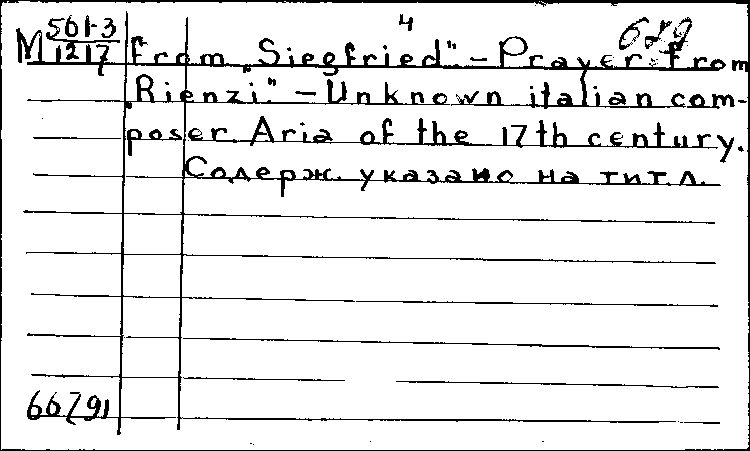 4
M 561-3/1217 from „Siegfried". – Prayer from
„Rienzi." – Unknown italian com-
poser. Aria of the 17th century.
Содерж. указано на тит. л.